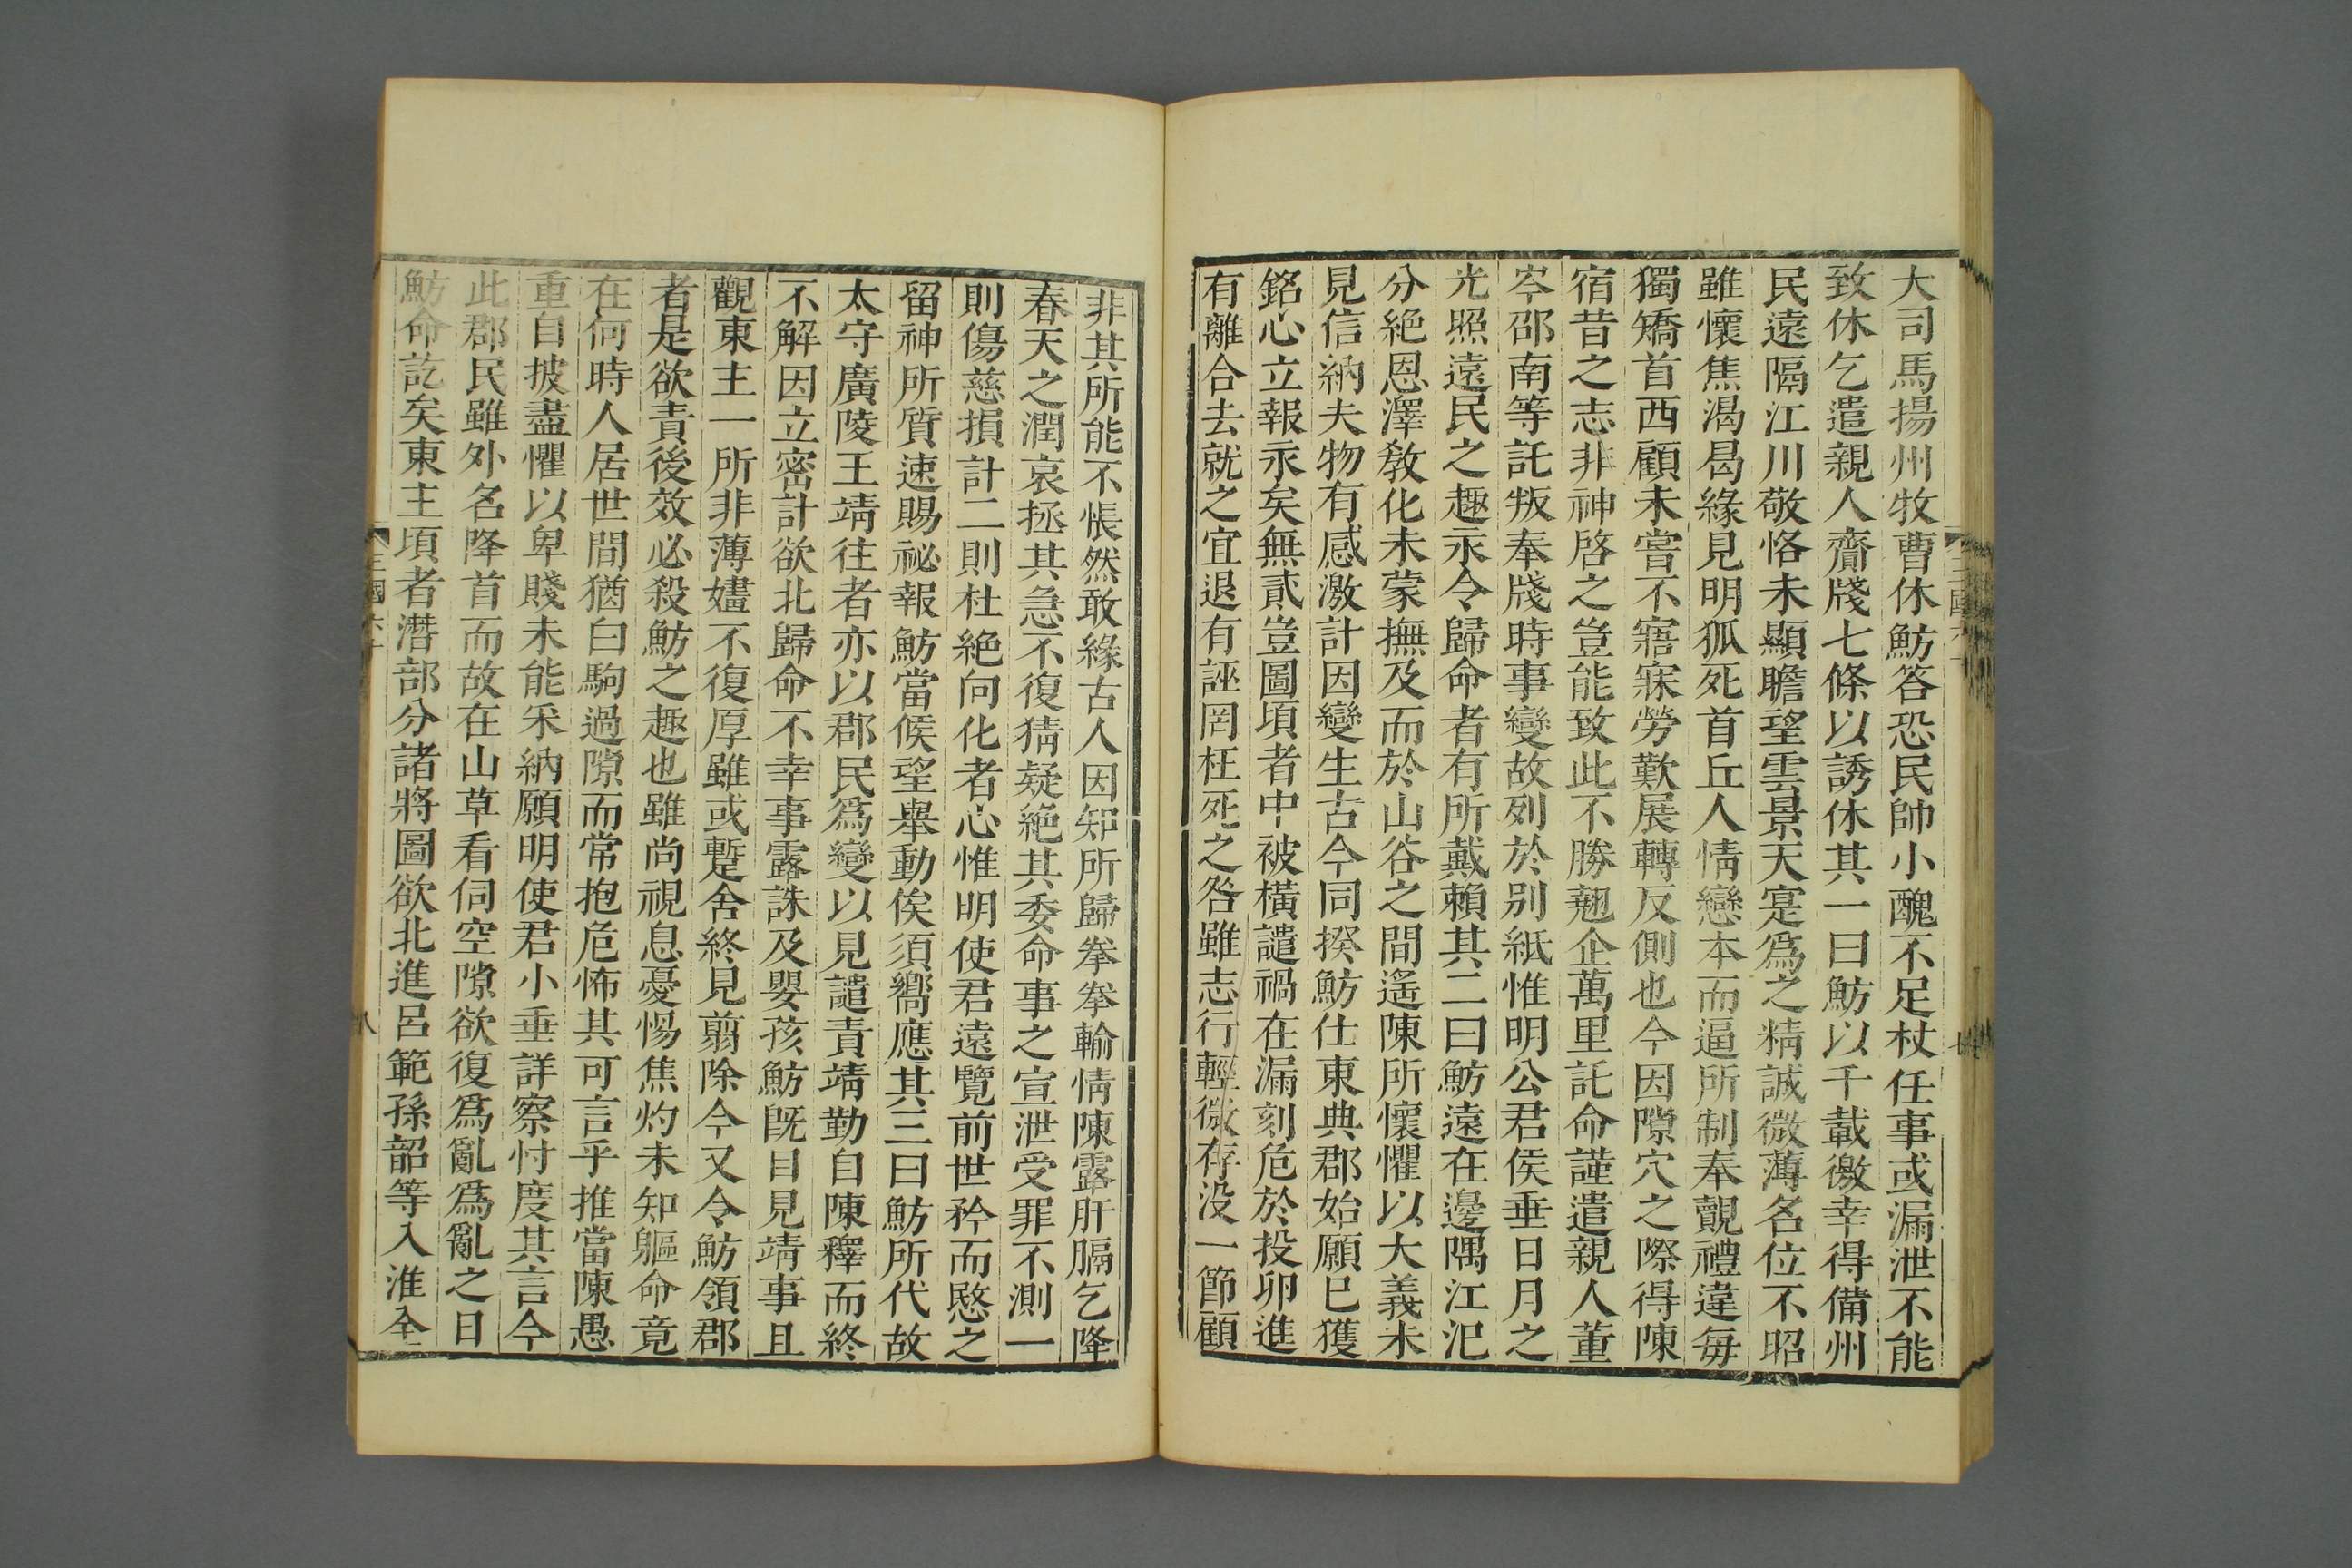 大司馬揚州牧曹休魴答恐民帥小醜不足杖任事或漏泄不能
致休乞遣親人齎牋七條以誘休其一曰魴以千載徼幸得備州
民遠隔江川敬恪未顯瞻望雲景天寔爲之精誠微薄名位不昭
雖懷焦渴曷緣見明狐死首丘人情戀本而逼所制奉覿禮違每
獨矯首西顧未嘗不寤寐勞歎展轉反側也今因隙穴之際得陳
宿昔之志非神啓之豈能致此不勝翹企萬里託命謹遣親人董
岑邵南等託叛奉牋時事變故列於别紙惟明公君侯垂日月之
光照遠民之趣永令歸命者有所戴賴其二曰魴遠在邊隅江汜
分絶恩澤敎化未蒙撫及而於山谷之間遙陳所懷懼以大義未
見信納夫物有感激計因變生古今同揆魴仕東典郡始願已獲
銘心立報永矣無貳豈圖頃者中被橫譴禍在漏刻危於投卵進
有離合去就之宜退有誣罔枉死之咎雖志行輕微存没一節顧
非其所能不悵然敢緣古人因知所歸拳拳輸情陳露肝膈乞降
春天之潤哀拯其急不復猜疑絶其委命事之宣泄受罪不測一
則傷慈損計二則杜絶向化者心惟明使君遠覽前世矜而愍之
留神所質速賜祕報魴當候望舉動俟須嚮應其三曰魴所代故
太守廣陵王靖往者亦以郡民爲變以見譴責靖勤自陳釋而終
不解因立密計欲北歸命不幸事露誅及嬰孩魴旣目見靖事且
觀東主一所非薄嫿不復厚雖或蹔舍終見翦除今又令魴領郡
者是欲責後效必殺魴之趣也雖尚視息憂惕焦灼未知軀命竟
在何時人居世間猶白駒過隙而常抱危怖其可言乎推當陳愚
重自披盡懼以卑賤未能采納願明使君小垂詳察忖度其言今
此郡民雖外名降首而故在山草看伺空隙欲復爲亂爲亂之日
魴命訖矣東主頃者潛部分諸將圖欲北進呂範孫韶等入淮全
三國六十
八